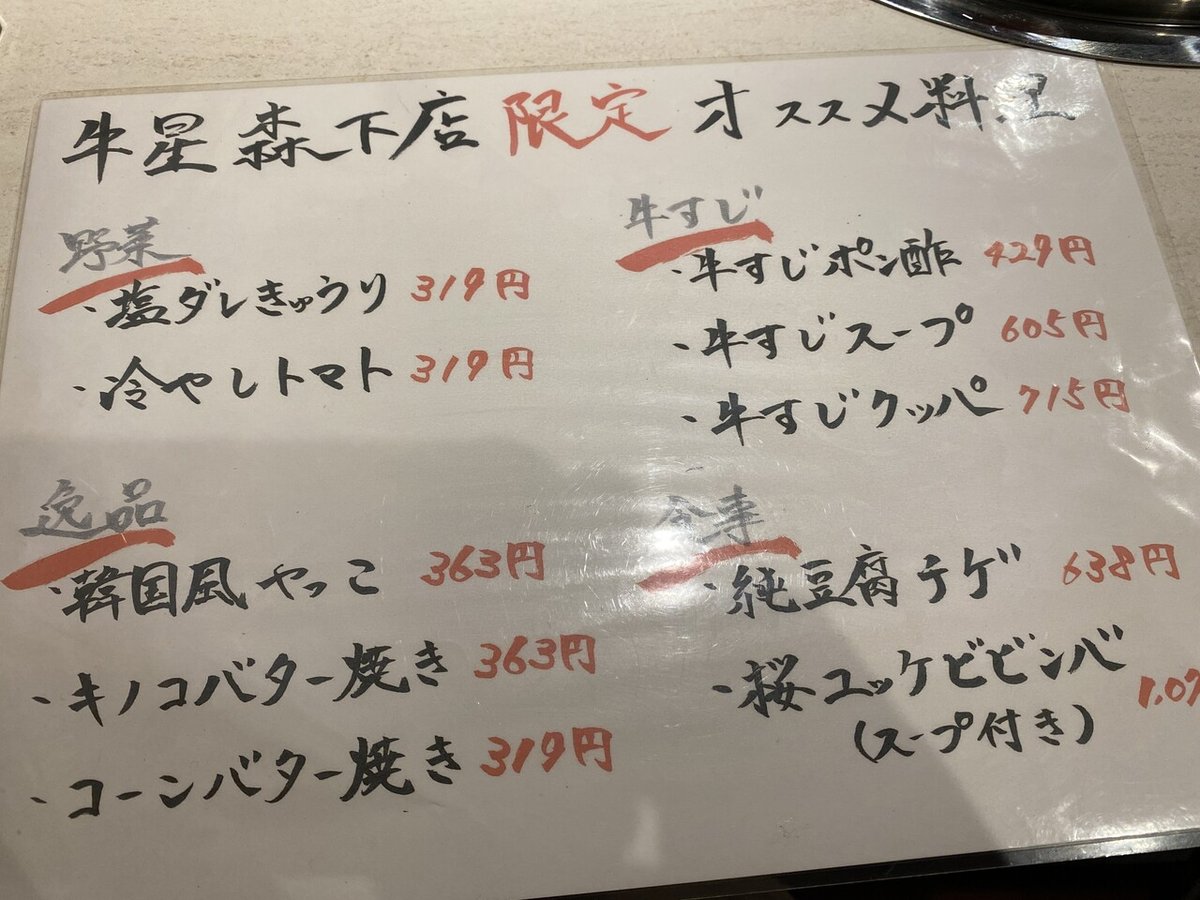 牛星 森下店 限定 オススメ料理
野菜
・塩ダレきゅうり 319円
・冷やしトマト 319円
牛すじ
・牛すじポン酢 429円
・牛すじスープ 605円
・牛すじクッパ 715円
逸品
・韓国風やっこ 363円
・キノコバター焼き 363円
・コーンバター焼き 319円
食事
・純豆腐チゲ 638円
・桜ユッケビビンバ
(スープ付き)